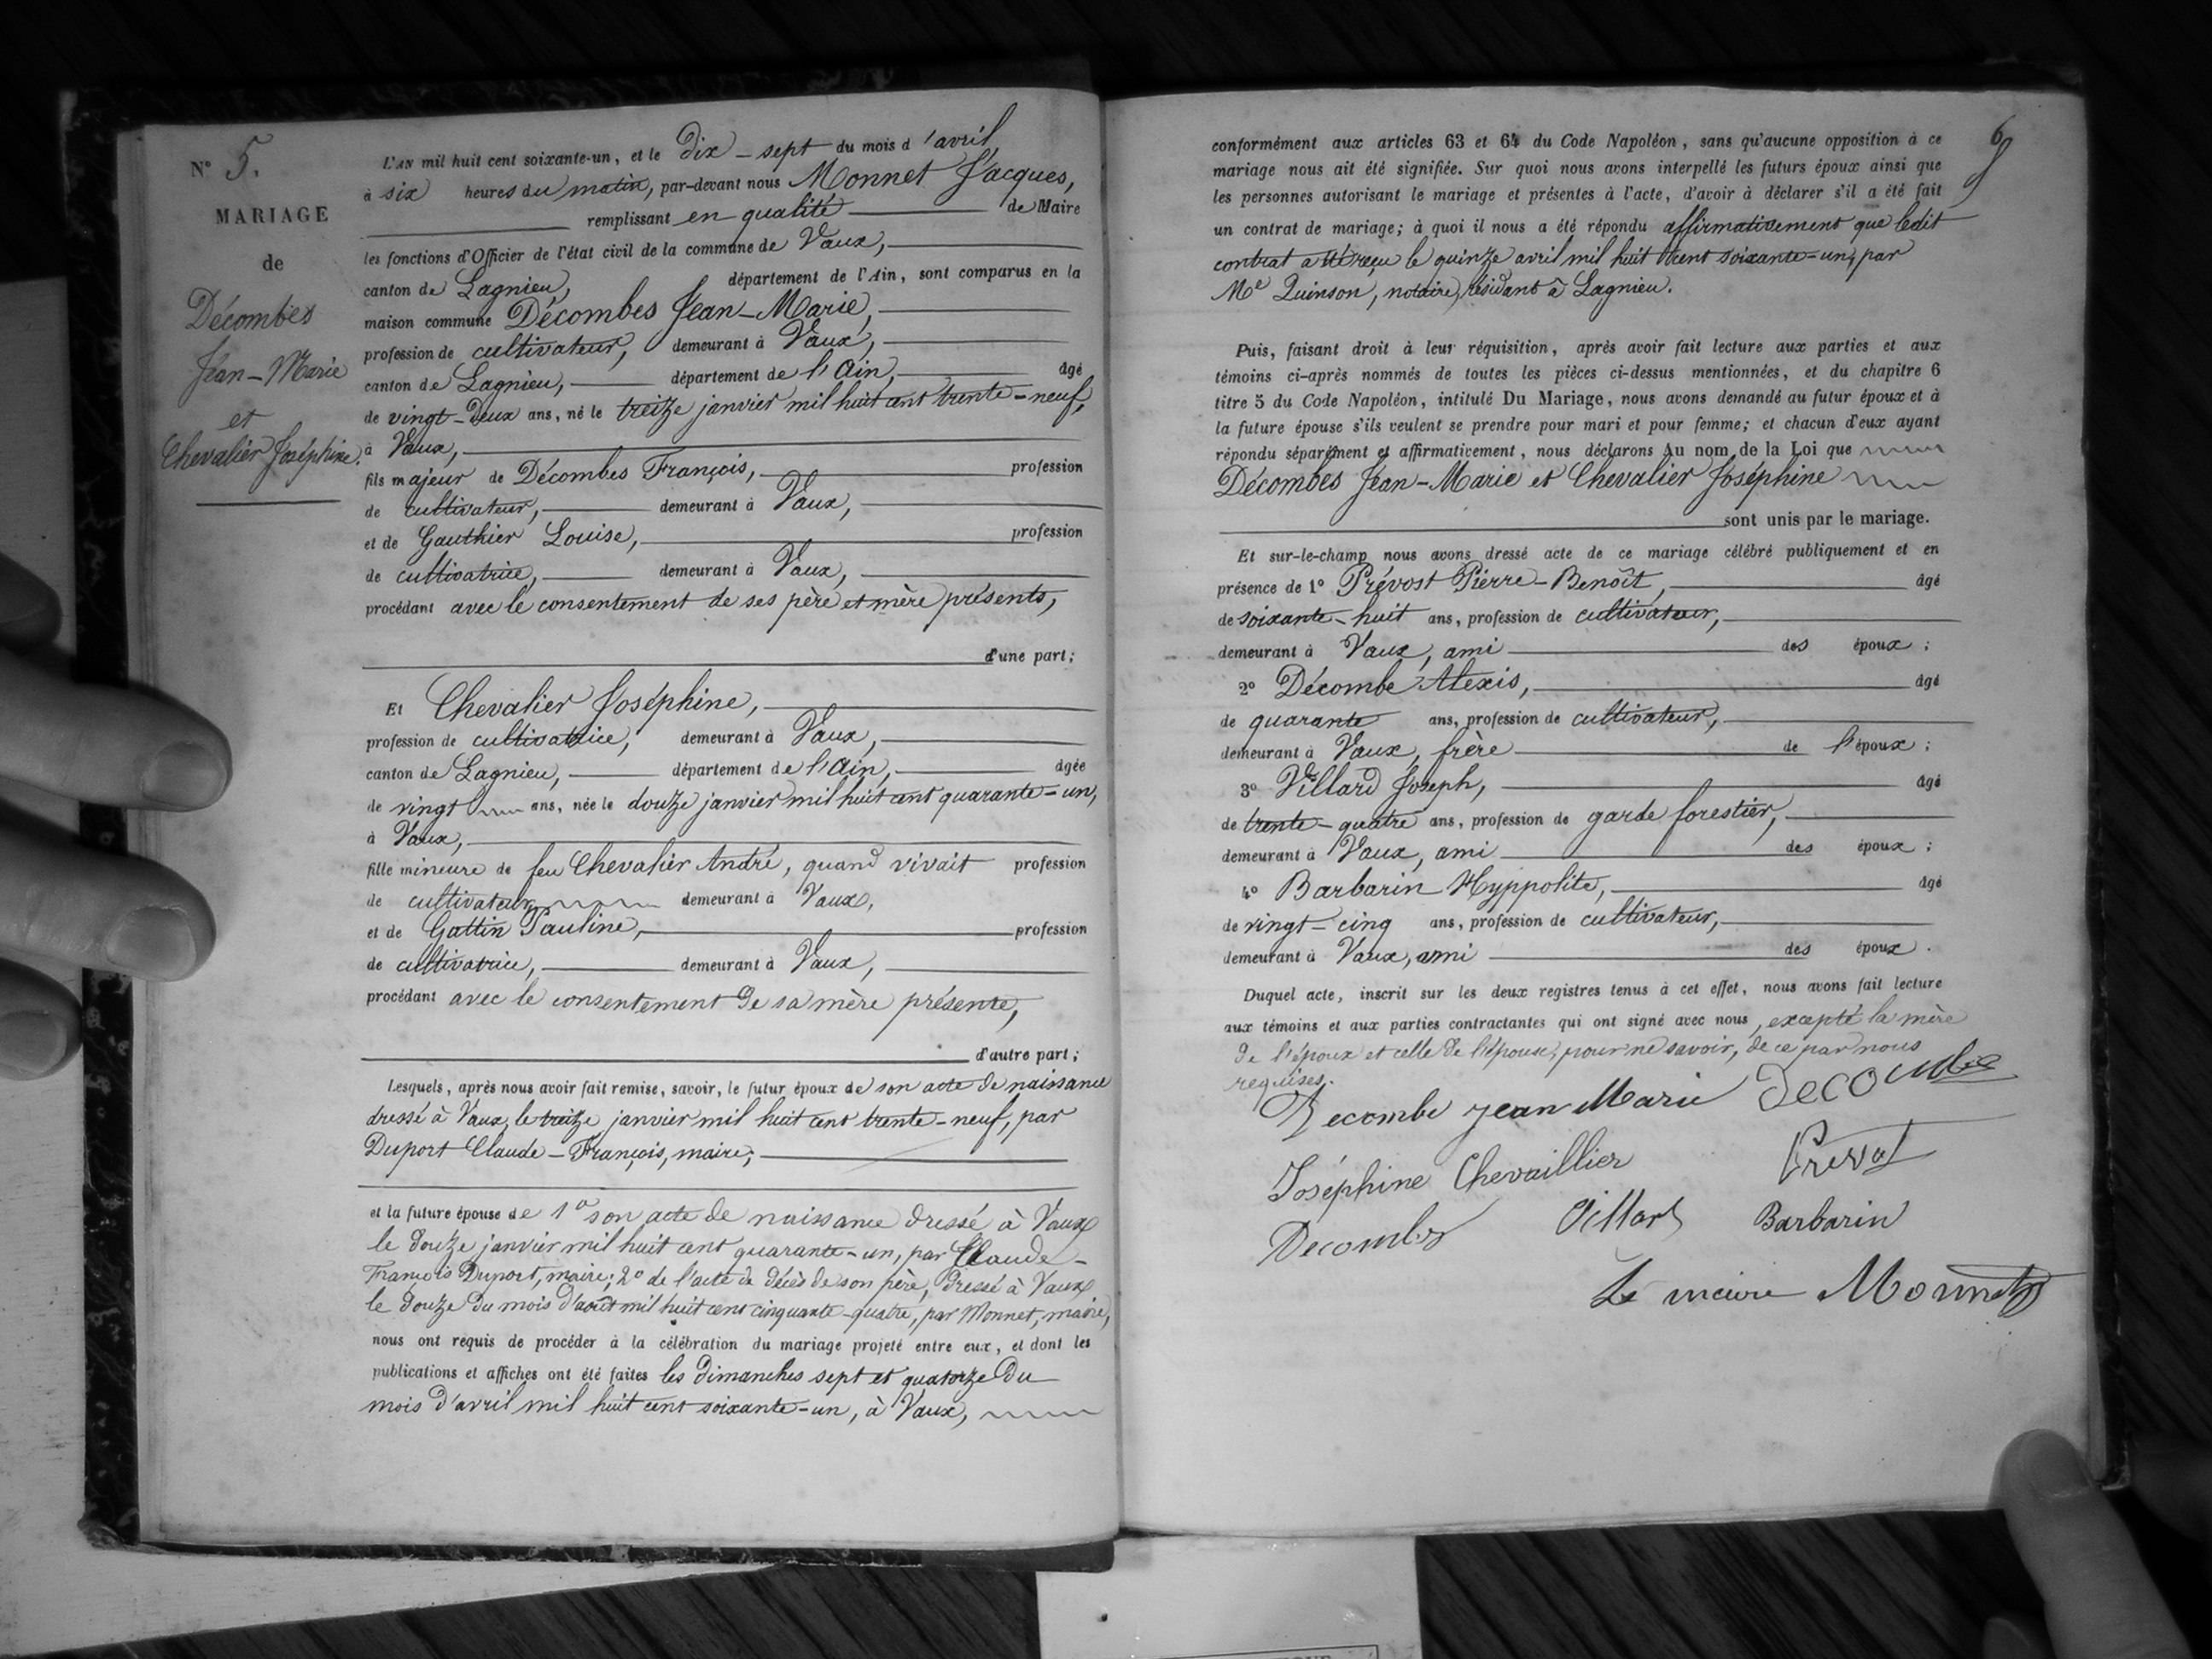 N° 5.
MARIAGE
de
Décombes
Jean-Marie
et
Chevalier Joséphine.
L'AN mil huit cent soixante-un, et le Dix-sept du mois d'avril,
à six heures du matin, par-devant nous Monnet Jacques,
remplissant en qualité de Maire
les fonctions d'Officier de l'état civil de la commune de Vaux,
canton de Lagnieu, département de l'Ain, sont comparus en la
maison commune Décombes Jean-Marie,
profession de cultivateur, demeurant à Vaux,
canton de Lagnieu, département de l'Ain, âgé
de vingt-deux ans, né le treize janvier mil huit cent trente-neuf,
à Vaux,
fils majeur de Décombes François, profession
de cultivateur, demeurant à Vaux,
et de Gauthier Louise, profession
de cultivatrice, demeurant à Vaux,
procédant avec le consentement de ses père et mère présents,
d'une part;
Et Chevalier Joséphine,
profession de cultivatrice, demeurant à Vaux,
canton de Lagnieu, département de l'Ain, âgée
de vingt ans, née le douze janvier mil huit cent quarante-un,
à Vaux,
fille mineure de feu Chevalier André, quand vivait profession
de cultivateur demeurant à Vaux,
et de Gattin Pauline, profession
de cultivatrice, demeurant à Vaux,
procédant avec le consentement de sa mère présente,
d'autre part;
Lesquels, après nous avoir fait remise, savoir, le futur époux de son acte de naissance
dressé à Vaux, le treize janvier mil huit cent trente-neuf, par
Duport Claude-François, maire;
et la future épouse de 1° son acte de naissance dressé à Vaux
le douze janvier mil huit cent quarante-un, par Claude-
François Duport, maire; 2° de l'acte de décès de son père, dressé à Vaux
le douze du mois d'août mil huit cent cinquante-quatre, par Monnet, maire,
nous ont requis de procéder à la célébration du mariage projeté entre eux, et dont les
publications et affiches ont été faites les dimanches sept et quatorze du
mois d'avril mil huit cent soixante-un, à Vaux,
6
conformément aux articles 63 et 64 du Code Napoléon, sans qu'aucune opposition à ce
mariage nous ait été signifiée. Sur quoi nous avons interpellé les futurs époux ainsi que
les personnes autorisant le mariage et présentes à l'acte, d'avoir à déclarer s'il a été fait
un contrat de mariage; à quoi il nous a été répondu affirmativement que ledit
contrat a été reçu le quinze avril mil huit cent soixante-un, par
Me Quinson, notaire, résidant à Lagnieu.
Puis, faisant droit à leur réquisition, après avoir fait lecture aux parties et aux
témoins ci-après nommés de toutes les pièces ci-dessus mentionnées, et du chapitre 6
titre 5 du Code Napoléon, intitulé Du Mariage, nous avons demandé au futur époux et à
la future épouse s'ils veulent se prendre pour mari et pour femme; et chacun d'eux ayant
répondu séparément et affirmativement, nous déclarons Au nom de la Loi que
Décombes Jean-Marie et Chevalier Joséphine
sont unis par le mariage.
Et sur-le-champ nous avons dressé acte de ce mariage célébré publiquement et en
présence de 1° Prévost Pierre-Benoît, âgé
de soixante-huit ans, profession de cultivateur,
demeurant à Vaux, ami des époux;
2° Décombe Alexis, âgé
de quarante ans, profession de cultivateur,
demeurant à Vaux, frère de l'époux;
3° Villard Joseph, âgé
de trente-quatre ans, profession de garde forestier,
demeurant à Vaux, ami des époux;
4° Barbarin Hyppolite, âgé
de vingt-cinq ans, profession de cultivateur,
demeurant à Vaux, ami des époux.
Duquel acte, inscrit sur les deux registres tenus à cet effet, nous avons fait lecture
aux témoins et aux parties contractantes qui ont signé avec nous, excepté la mère
de l'époux et celle de l'épouse, pour ne savoir, de ce par nous
requises.
Decombe jean Marie Decombe
Joséphine Chevaillier Prevot
Decombes Villard Barbarin
Le maire Monnet